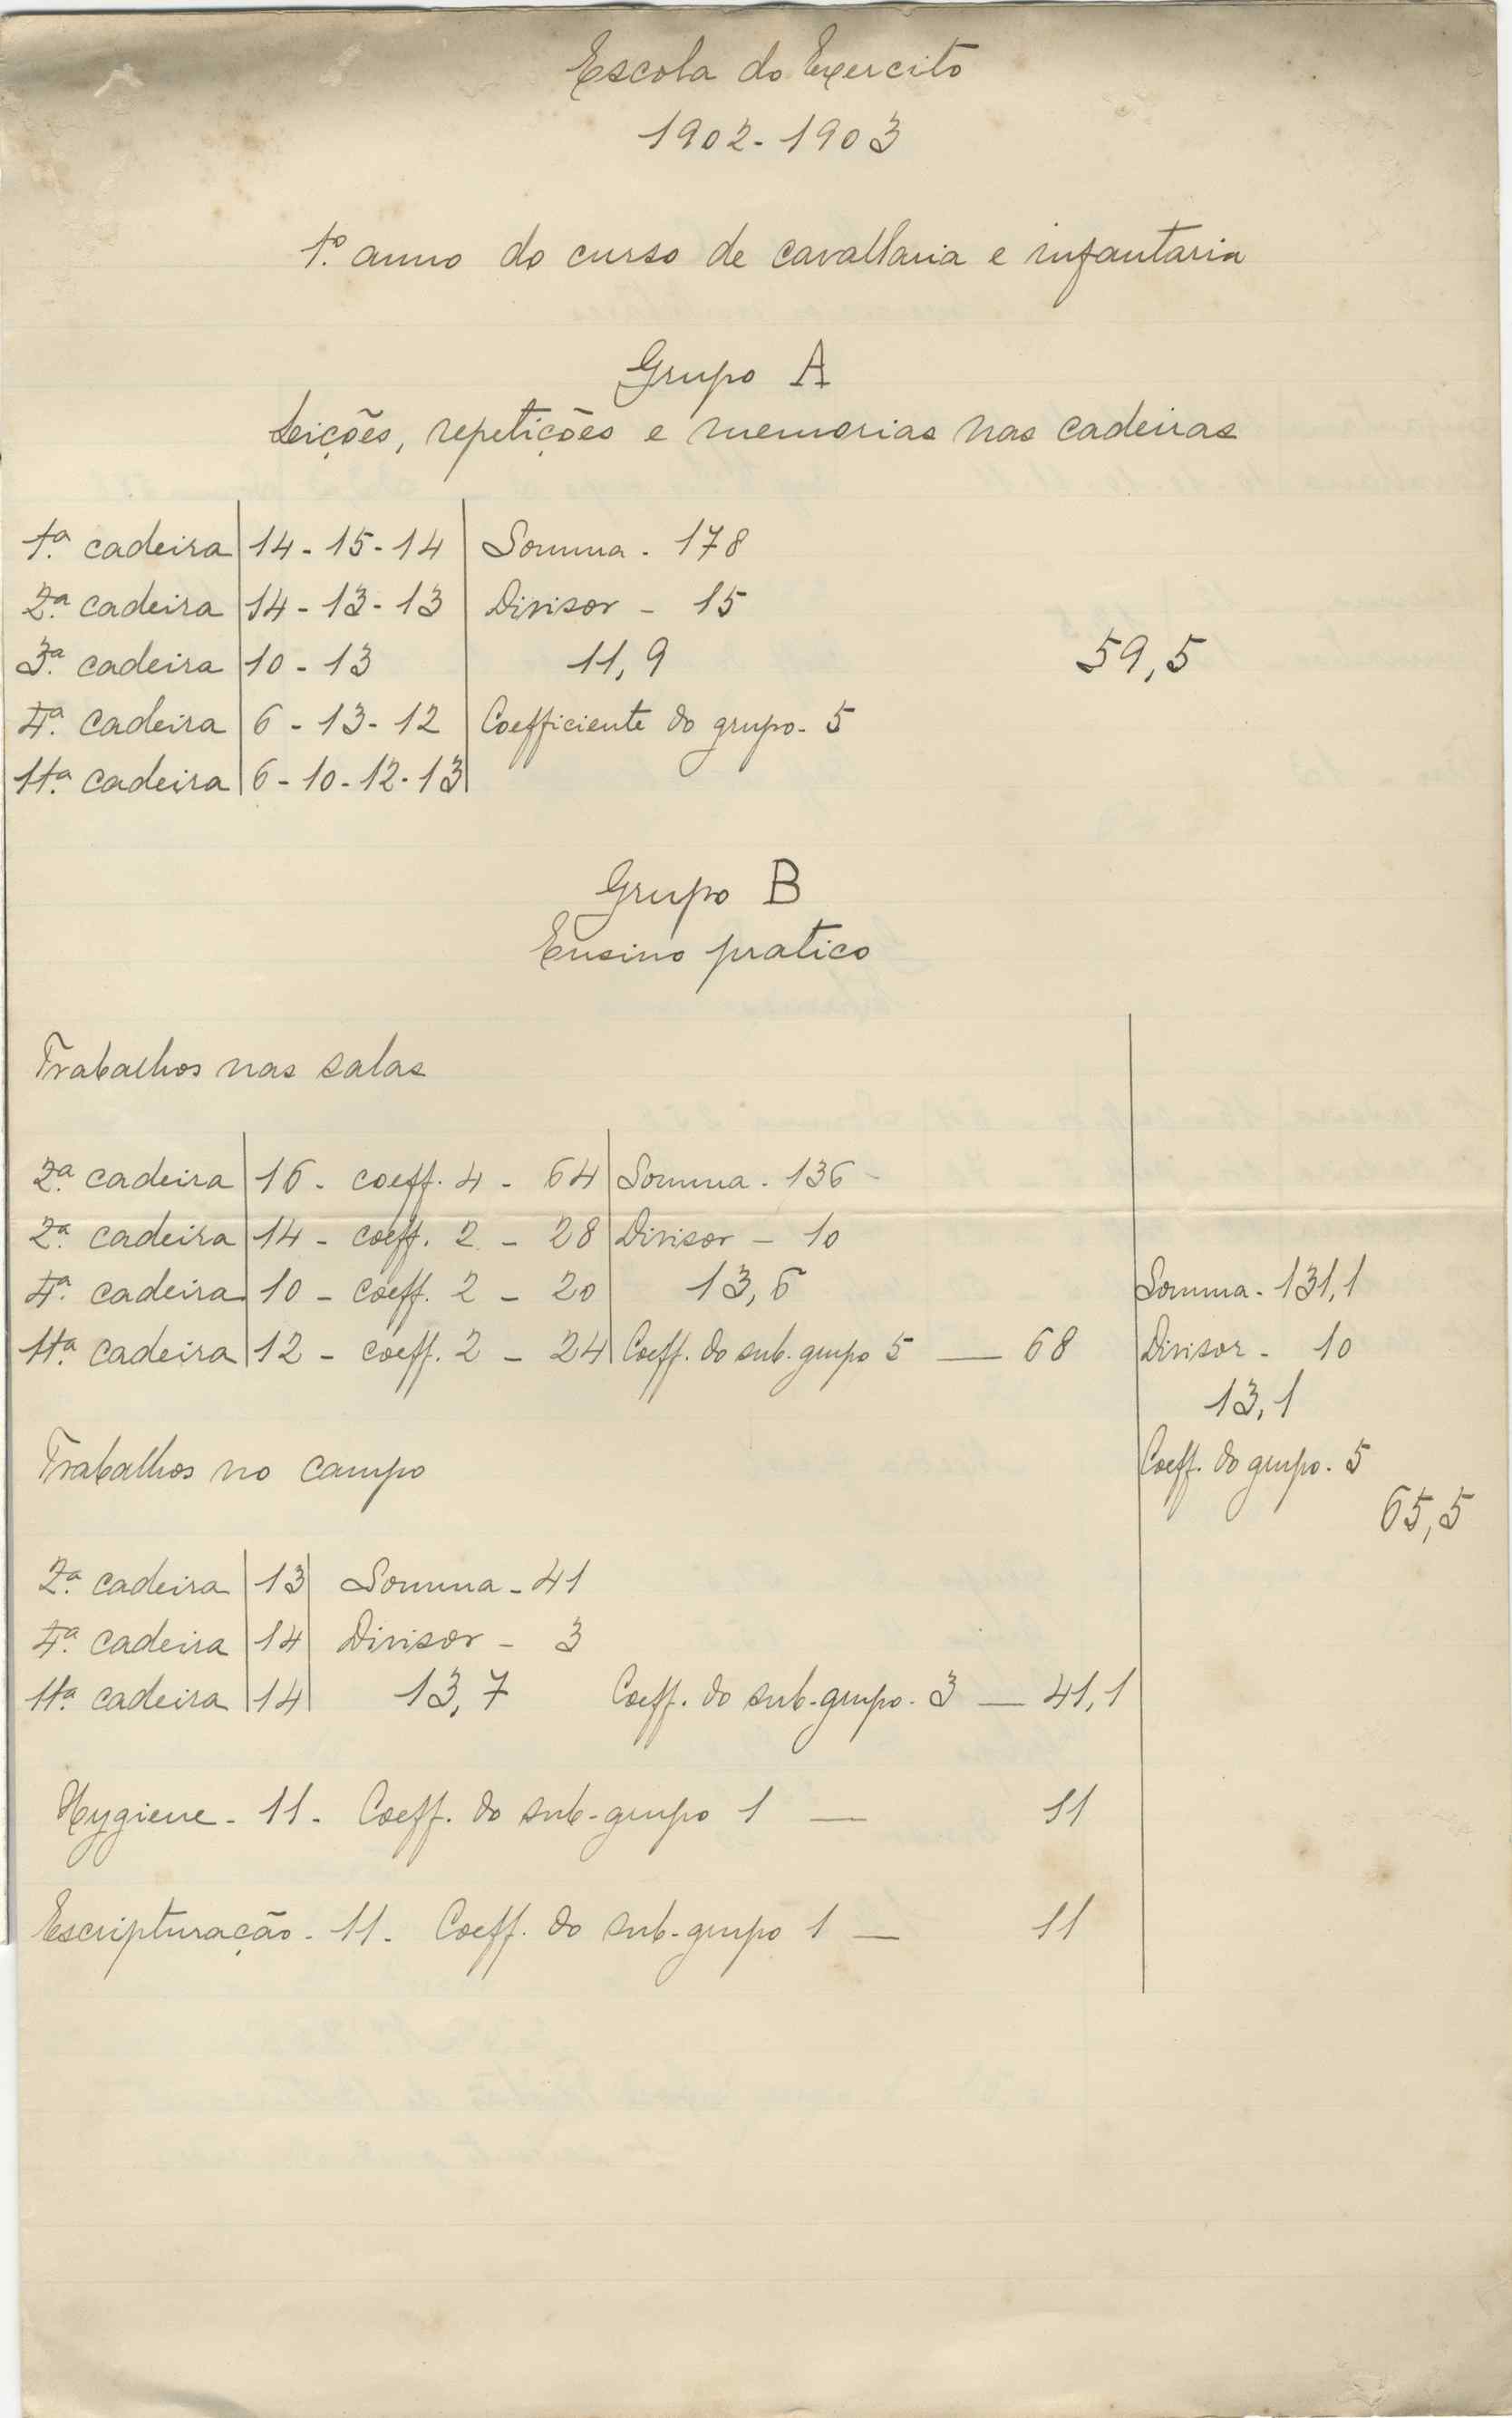 Escola do Exercito
1902-1903
1º. anno do curso de cavallaria e infantaria
Grupo A
Leições, repetições e memorias nas cadeiras
1ª. cadeira 14-15-14 Somma - 178
2ª. cadeira 14-13-13 Divisor - 15
3ª. cadeira 10-13 11,9 59,5
4ª. cadeira 6-13-12 Coefficiente do grupo - 5
11ª. cadeira 6-10-12-13
Grupo B
Ensino pratico
Trabalhos nas salas
2ª. cadeira 16 - coeff. 4 - 64 Somma - 136
2ª. cadeira 14 - coeff. 2 - 28 Divisor - 10
4ª. cadeira 10 - coeff. 2 - 20 13,6 Somma - 131,1
11ª. cadeira 12 - coeff. 2 - 24 Coeff. do sub-grupo 5 — 68 Divisor - 10
13,1
Trabalhos no campo Coeff. do grupo - 5
65,5
2ª. cadeira 13 Somma - 41
4ª. cadeira 14 Divisor - 3
11ª. cadeira 14 13,7 Coeff. do sub-grupo - 3 — 41,1
Hygiene - 11 - Coeff. do sub-grupo 1 — 11
Escripturação - 11 - Coeff. do sub-grupo 1 — 11